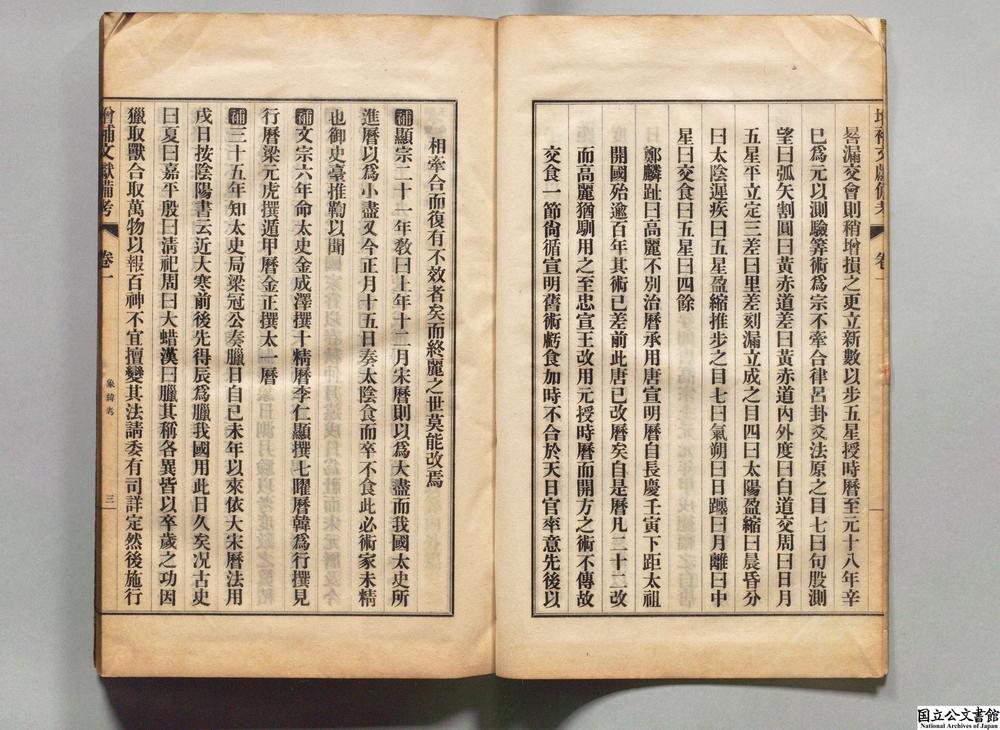 增補文獻備考 卷一
晷漏交會則稍增損之更立新數以步五星授時曆至元十八年辛
巳爲元以測驗筭術爲宗不牽合律呂卦爻法原之目七曰句股測
望曰弧矢割圓曰黃赤道差曰黃赤道內外度曰白道交周曰日月
五星平立定三差曰里差刻漏立成之目四曰太陽盈縮曰晨昏分
曰太陰遲疾曰五星盈縮推步之目七曰氣朔曰日躔曰月離曰中
星曰交食曰五星曰四餘
鄭麟趾曰高麗不別治曆承用唐宣明曆自長慶壬寅下距太祖
開國殆逾百年其術已差前此唐已改曆矣自是曆凡二十二改
而高麗猶馴用之至忠宣王改用元授時曆而開方之術不傳故
交食一節尙循宣明舊術虧食加時不合於天日官率意先後以
相牽合而復有不效者矣而終麗之世莫能改焉
補顯宗二十一年敎曰上年十二月宋曆則以爲大盡而我國太史所
進曆以爲小盡又今正月十五日奏太陰食而卒不食此必術家未精
也御史臺推鞫以聞
補文宗六年命太史金成澤撰十精曆李仁顯撰七曜曆韓爲行撰見
行曆梁元虎撰遁甲曆金正撰太一曆
補三十五年知太史局梁冠公奏臘日自已未年以來依大宋曆法用
戌日按陰陽書云近大寒前後先得辰爲臘我國用此日久矣况古史
曰夏曰嘉平殷曰淸祀周曰大蜡漢曰臘其稱各異皆以卒歲之功因
獵取獸合取萬物以報百神不宜擅變其法請委有司詳定然後施行
增補文獻備考 卷一 象緯考 三
国立公文書館
National Archives of Japan